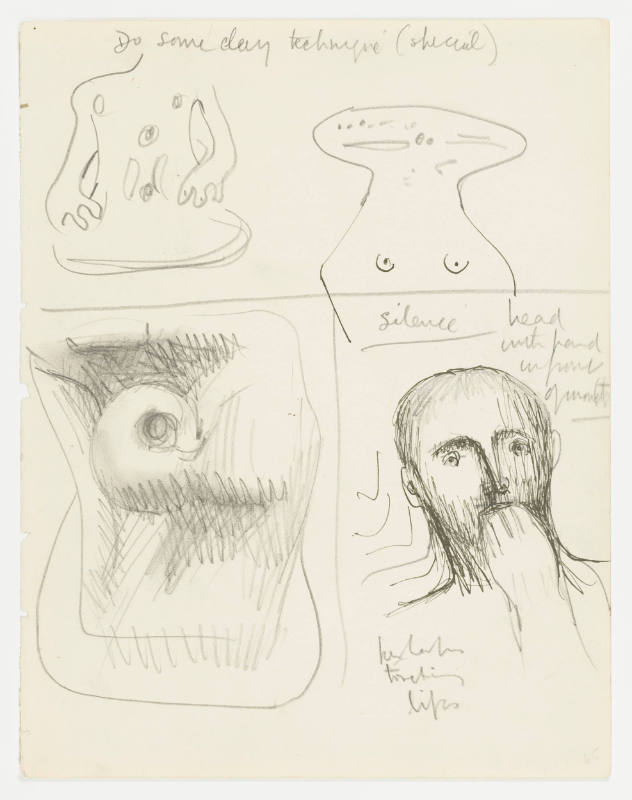 Do some clay technique (special)
silence
head
with hand
in front
of mouth
touching
lips